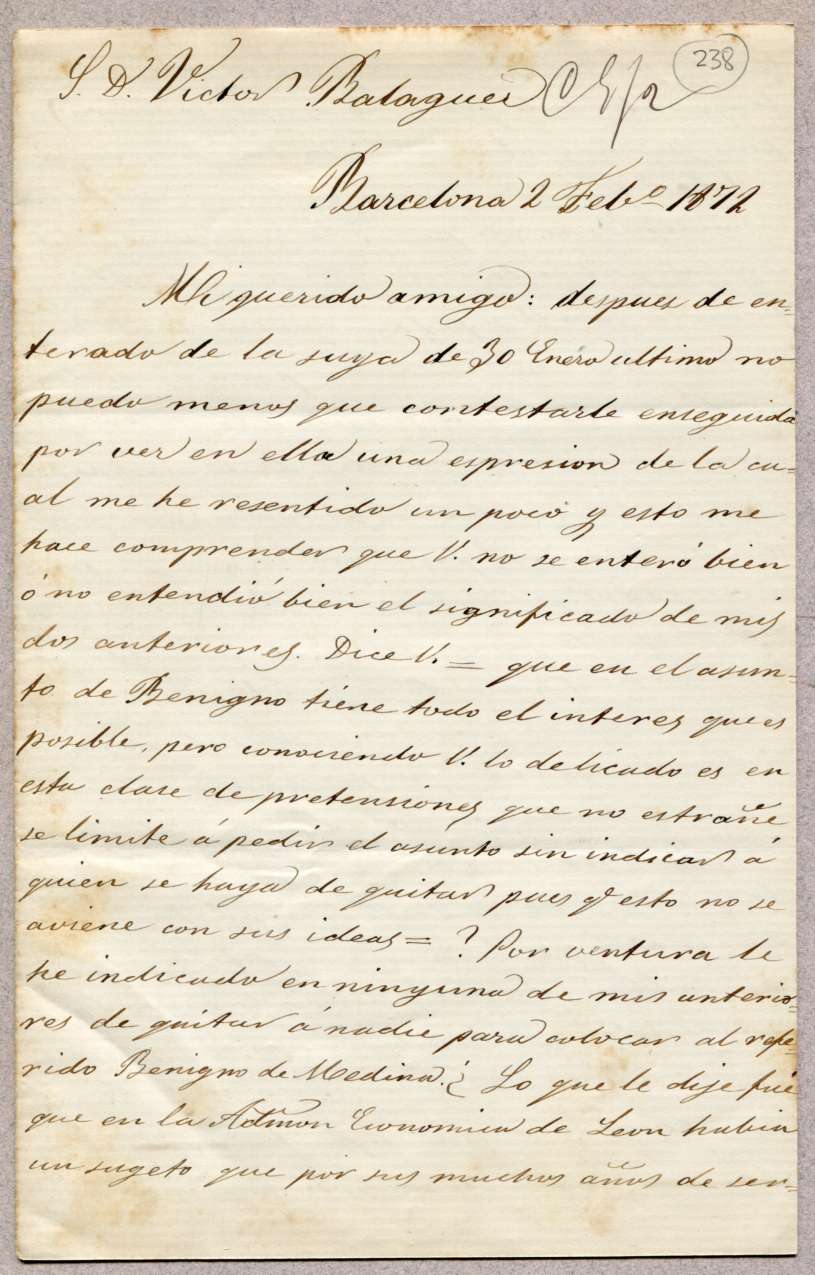 S. D. Victor Balaguer
238
Barcelona 2 Feb.o 1872
Mi querido amigo: despues de en-
terado de la suya de 30 Enero ultimo no
puedo menos que contestarle enseguida
por ver en ella una espresion de la cu-
al me he resentido un poco y esto me
hace comprender que V. no se enteró bien
ó no entendió bien el significado de mis
dos anteriores. Dice V. = que en el asun-
to de Benigno tiene todo el interes que es
posible, pero conociendo V. lo delicado es en
esta clase de pretensiones que no estrañe
se limite á pedir el asunto sin indicar á
quien se haya de quitar pues qe esto no se
aviene con sus ideas = ? Por ventura le
he indicado en ninguna de mis anterio-
res de quitar á nadie para colocar al refe-
rido Benigno de Medina.¿ Lo que le dije fué
que en la Admon Economica de Leon habia
un sugeto que por sus muchos años de ser-